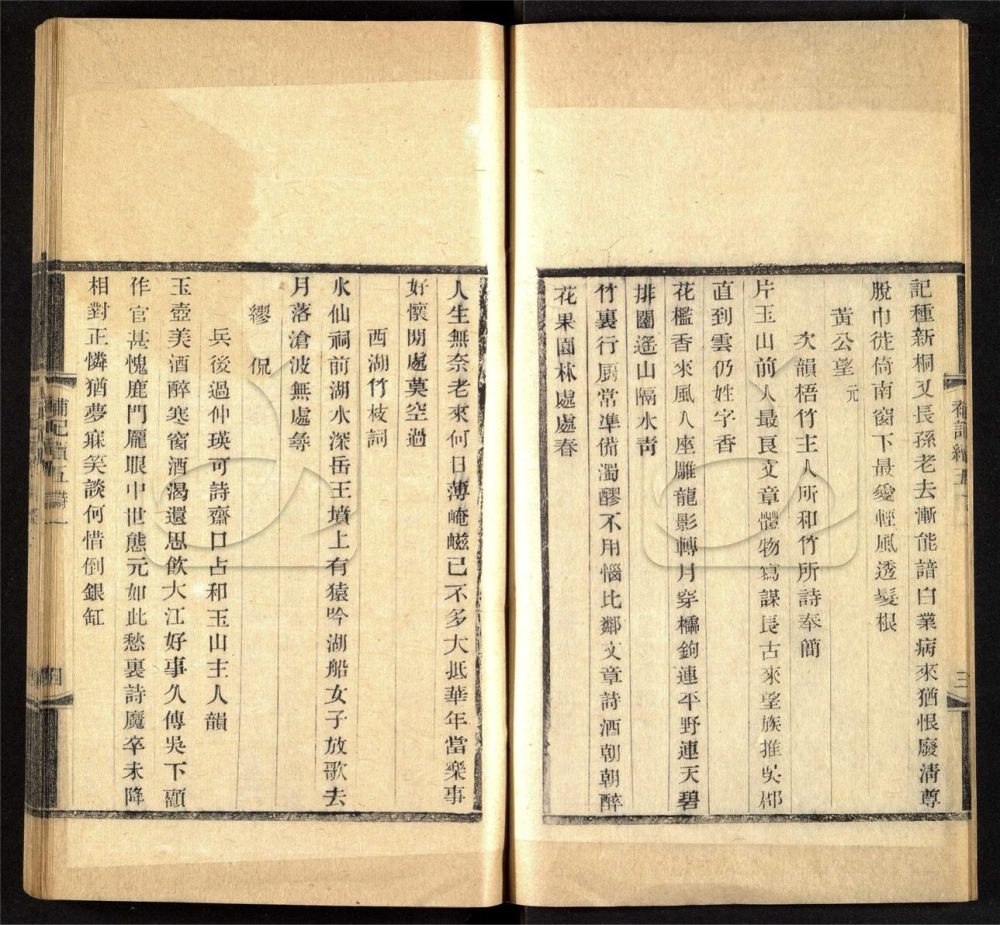 記種新桐又長孫老去漸能諳白業病來猶恨廢清尊
脫巾徙倚南窗下最愛輕風透髮根
黃公望 元
次韻梧竹主人所和竹所詩奉簡
片玉山前人最良文章體物寫謀長古來望族推吳郡
直到雲仍姓字香
花檻香來風入座雕龍影轉月穿櫺鉤連平野連天碧
排闥遙山隔水靑
竹裏行厨常準備濁醪不用惱比鄰文章詩酒朝朝醉
花果園林處處春
三
人生無奈老來何日薄崦嵫已不多大抵華年當樂事
好懷閒處莫空過
西湖竹枝詞
水仙祠前湖水深岳王墳上有猿吟湖船女子放歌去
月落滄波無處尋
繆侃
兵後過仲瑛可詩齋口占和玉山主人韻
玉壺美酒醉寒窗酒渴還思飲大江好事久傳吳下顧
作官甚愧鹿門龐眼中世態元如此愁裏詩魔卒未降
相對正憐猶夢寐笑談何惜倒銀缸
四